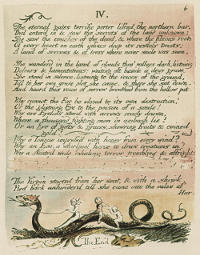 6
IV.
The eternal gates terrific porter lifted the northern bar:
Thel enter'd in & saw the secrets of the land unknown;
She saw the couches of the dead, & where the fibrous roots
Of every heart on earth infixes deep its restless twists:
A land of sorrows & of tears where never smile was seen.
She wanderd in the land of clouds thro' valleys dark, listning
Dolours & lamentations: waiting oft beside a dewy grave
She stood in silence, listning to the voices of the ground,
Till to her own grave plot she came, & there she sat down,
And heard this voice of sorrow breathed from the hollow pit.
Why cannot the Ear be closed to its own destruction?
Or the glistning Eye to the poison of a smile!
Why are Eyelids stord with arrows ready drawn,
Where a thousand fighting men in ambush lie?
Or an Eye of gifts & graces, show'ring fruits & coined gold!
Why a Tongue impress'd with honey from every wind?
Why an Ear, a whirlpool fierce to draw creations in?
Why a Nostril wide inhaling terror trembling & affright
The Virgin started from her seat, & with a shriek
Fled back unhinderd till she came into the vales of
Har
The End